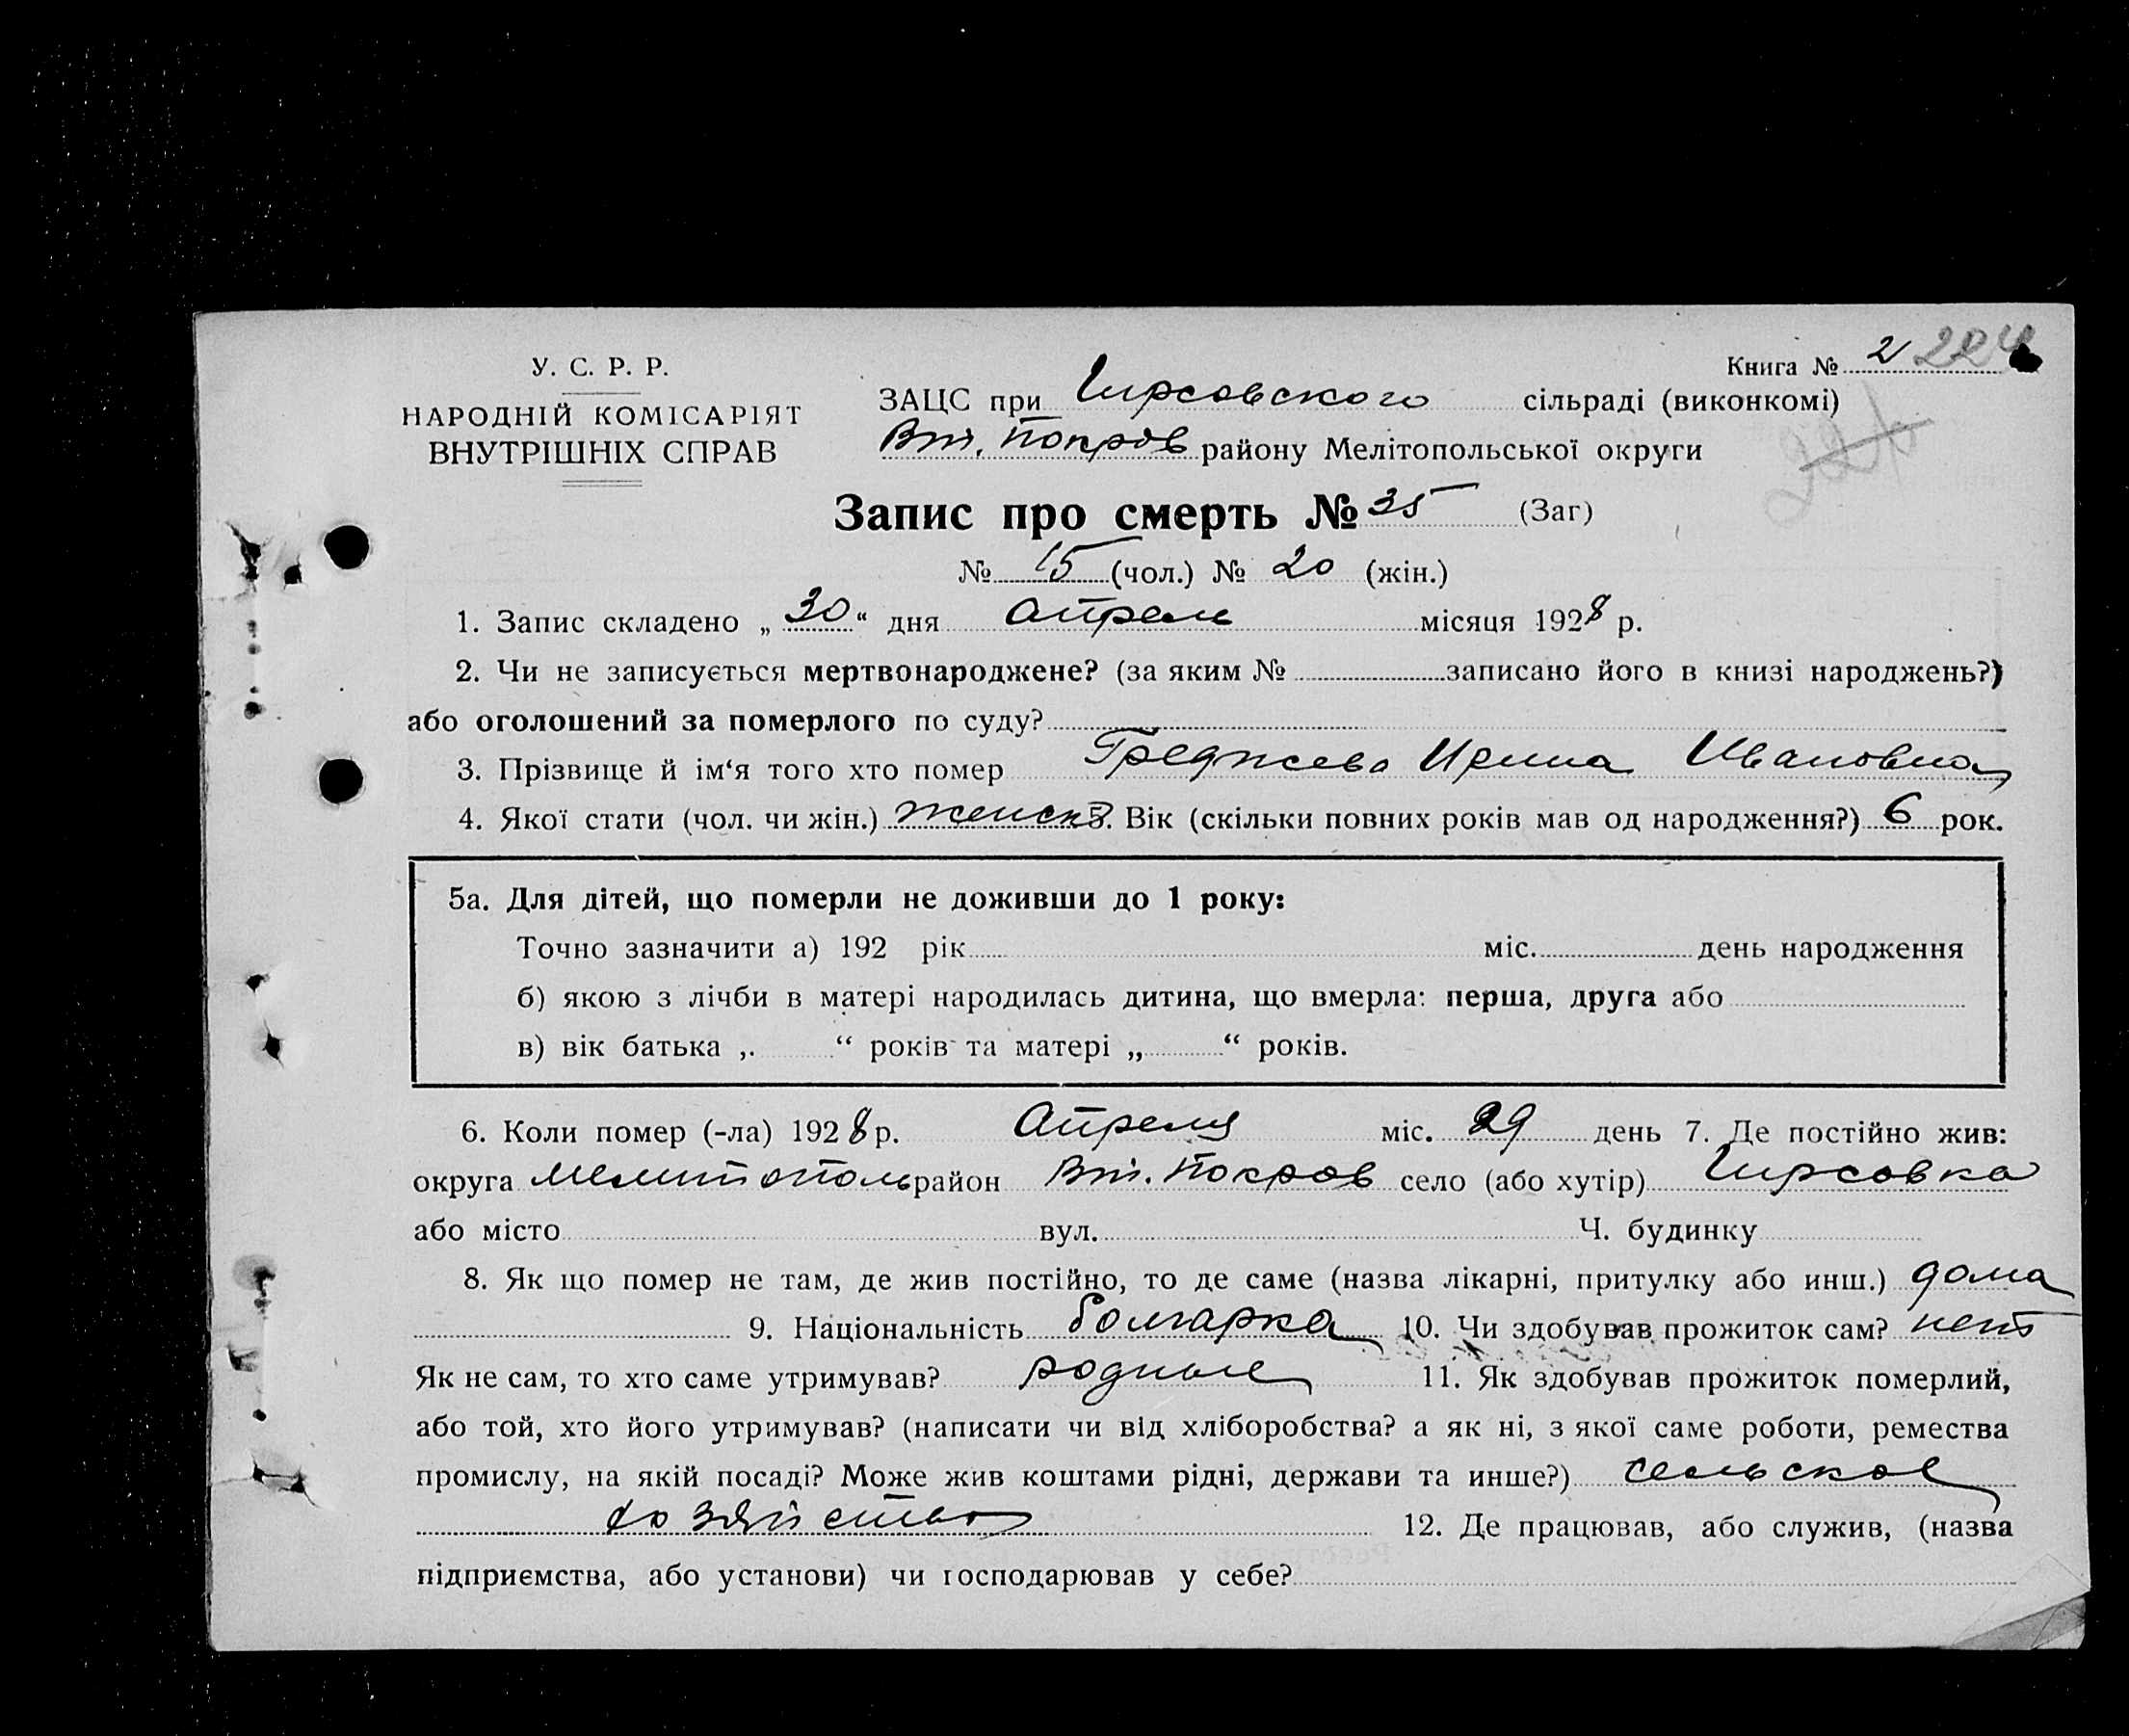 Книга № 2 224
У. С. Р. Р.
НАРОДНІЙ КОМІСАРІЯТ
ВНУТРІШНІХ СПРАВ
ЗАЦС при Гирсовского сільраді (виконкомі)
Вт. Покров району Мелітопольської округи
Запис про смерть № 35 (Заг)
№ 15 (чол.) № 20 (жін.)
1. Запис складено „ 30 “ дня Апрель місяця 1928 р.
2. Чи не записується мертвонароджене? (за яким № записано його в книзі народжень?)
або оголошений за померлого по суду?
3. Прізвище й ім‘я того хто помер Греджева Ирина Ивановна
4. Якої стати (чол. чи жін.) женск. Вік (скільки повних років мав од народження?) 6 рок.
5а. Для дітей, що померли не доживши до 1 року:
Точно зазначити а) 192 рік міс. день народження
б) якою з лічби в матері народилась дитина, що вмерла: перша, друга або
в) вік батька ,. “ років та матері „ “ років.
6. Коли помер (-ла) 1928 р. Апреля міс. 29 день 7. Де постійно жив:
округа Мелитополь район Вт. Покров село (або хутір) Гирсовка
або місто вул. Ч. будинку
8. Як що помер не там, де жив постійно, то де саме (назва лікарні, притулку або инш.) дома
9. Національність болгарка 10. Чи здобував прожиток сам? нет
Як не сам, то хто саме утримував? родные 11. Як здобував прожиток померлий,
або той, хто його утримував? (написати чи від хліборобства? а як ні, з якої саме роботи, ремества
промислу, на якій посаді? Може жив коштами рідні, держави та инше?) сельское
хозяйство 12. Де працював, або служив, (назва
підприємства, або установи) чи господарював у себе?